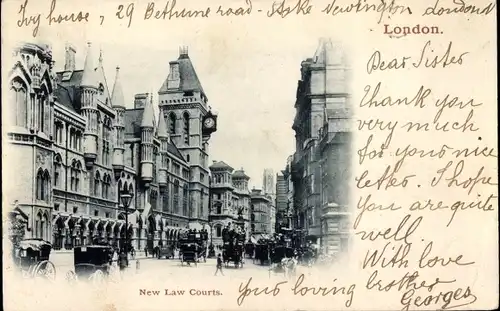 Ivy house, 29 Bethune road - Stoke Newington London
London.
Dear Sister
Thank you
very much
for your nice
letter. I hope
you are quite
well.
With love
from brother
Your loving brother
Georges
New Law Courts.